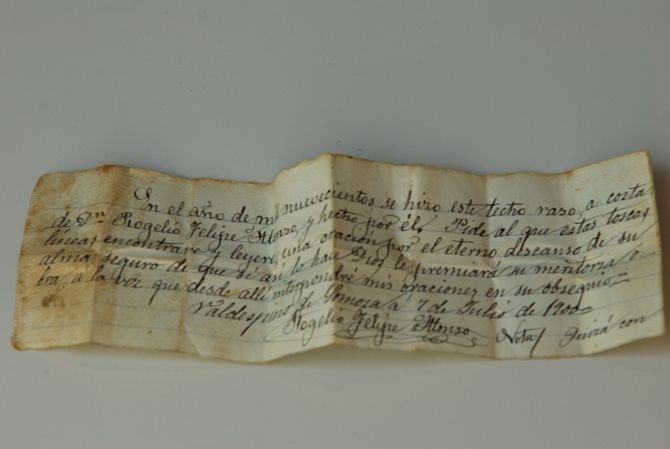 En el año de mil nuevecientos se hizo este techo raso, a costa
de Dn. Rogelio Felipe Alonso, y hecho por él. Pide al que estas toscas
lineas encontrare y leyere, una oración por el eterno descanso de su
alma, seguro de que si asi lo hace Dios le premiará su meritoria o
bra, a la vez que desde alli interpondré mis oraciones en su obsequio=
Valdespino de Somoza a 7 de Julio de 1900
Rogelio Felipe Alonso
Nota/ Quizá con